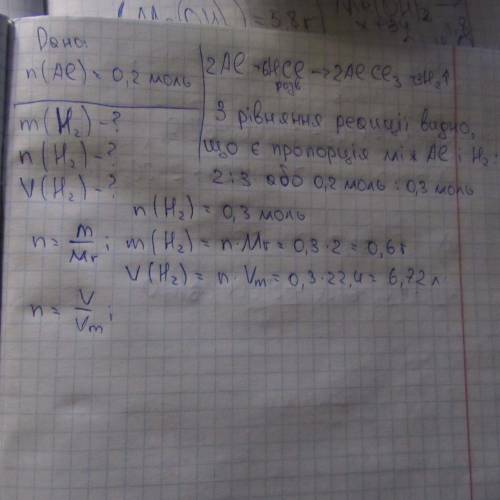 (Mg(OH)2) = 5.8 г
Дано
n(Al) = 0,2 моль
m(H2) - ?
n(H2) - ?
V(H2) - ?
2Al + 6HCl → 2AlCl3 + H2↑
розв.
З рівняння реакції видно,
що є пропорція між Al і H2:
2:3 або 0,2 моль : 0,3 моль
n(H2) = 0,3 моль
n = m/Mr; m(H2) = n·Mr = 0,3·2 = 0,6 г
V(H2) = n·Vm = 0,3·22,4 = 6,72 л.
n = V/Vm;